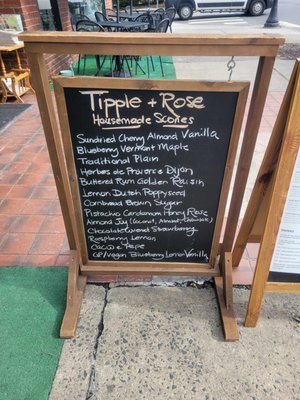 Tipple + Rose
Housemade Scones
Sundried Cherry Almond Vanilla
Blueberry Vermont Maple
Traditional Plain
Herbes de Provence Dijon
Buttered Rum Golden Raisin
Lemon Dutch Poppyseed
Cornbread Brown Sugar
Pistachio Cardamom Honey Rose
Almond Joy (Coconut, Almond, Chocolate)
Chocolate Covered Strawberry
Raspberry Lemon
Cacio e Pepe
GF/Vegan Blueberry Lemon Vanilla